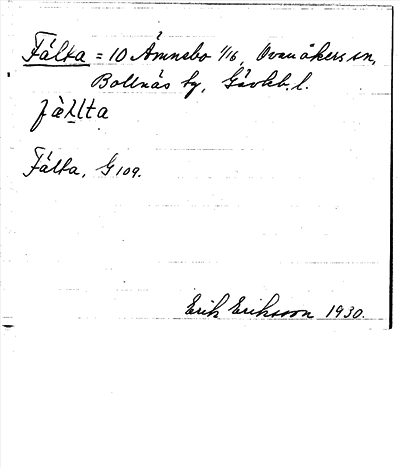 Fälta = 10 Ämnebo 1/16, Ovanåkers sn,
Bollnäs kg, Gävleb. l.
Fälta, G 109.
Erik Eriksson 1930.